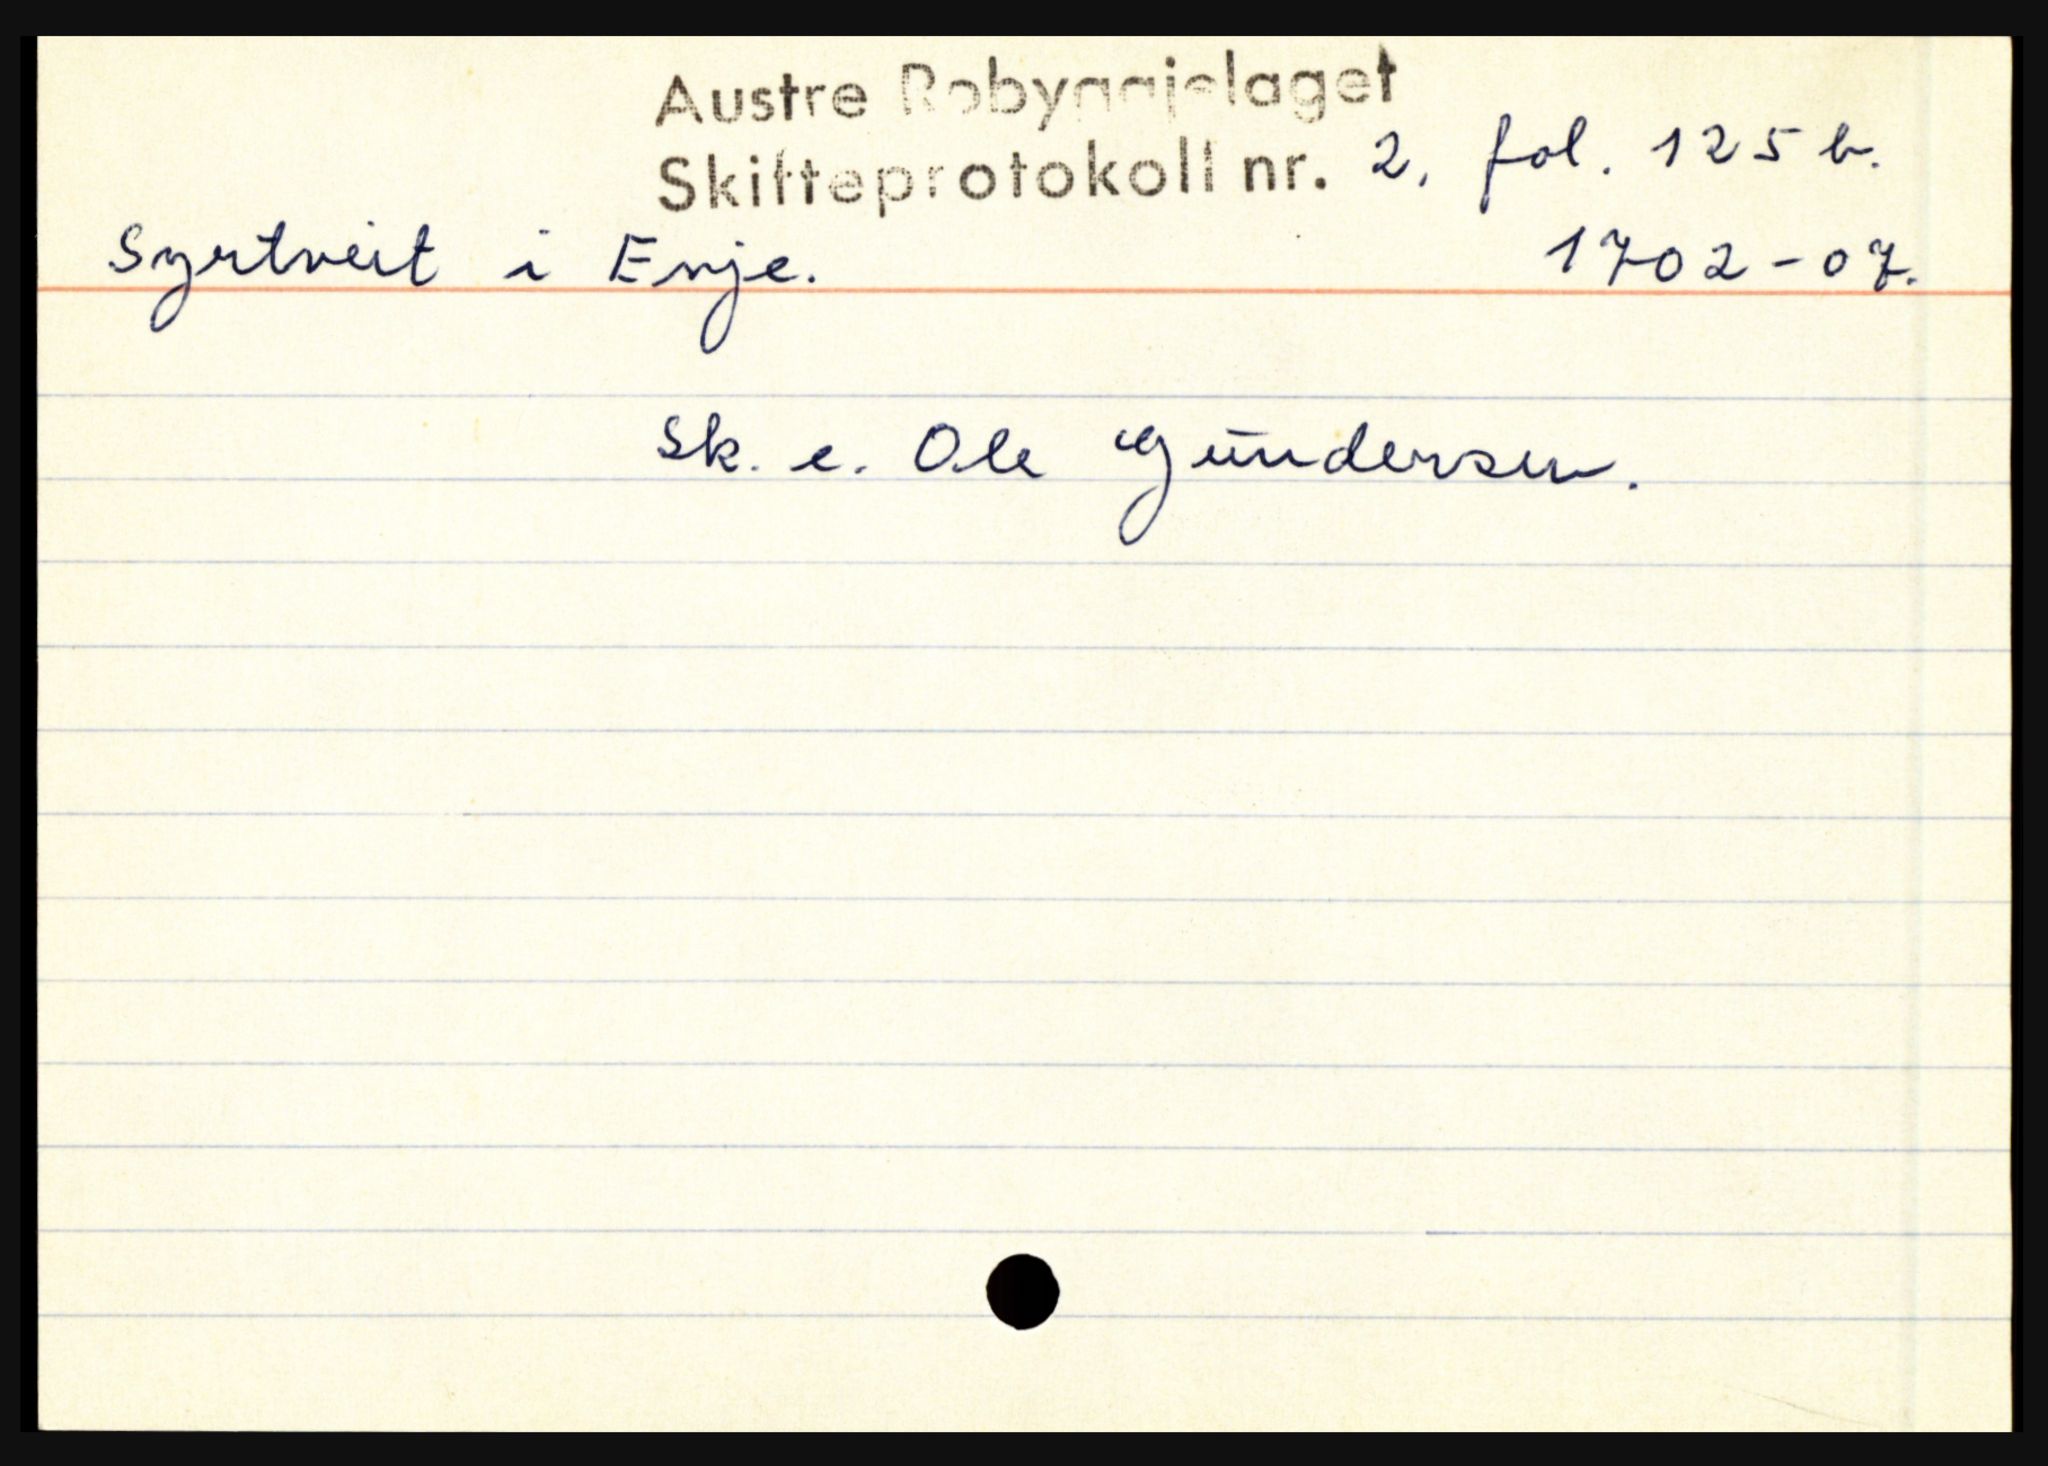 Austre Robyggjelaget
Skifteprotokoll nr. 2, fol. 125 b.
Syrtveit i Evje. 1702-07.
Sk. e. Ole Gundersen.